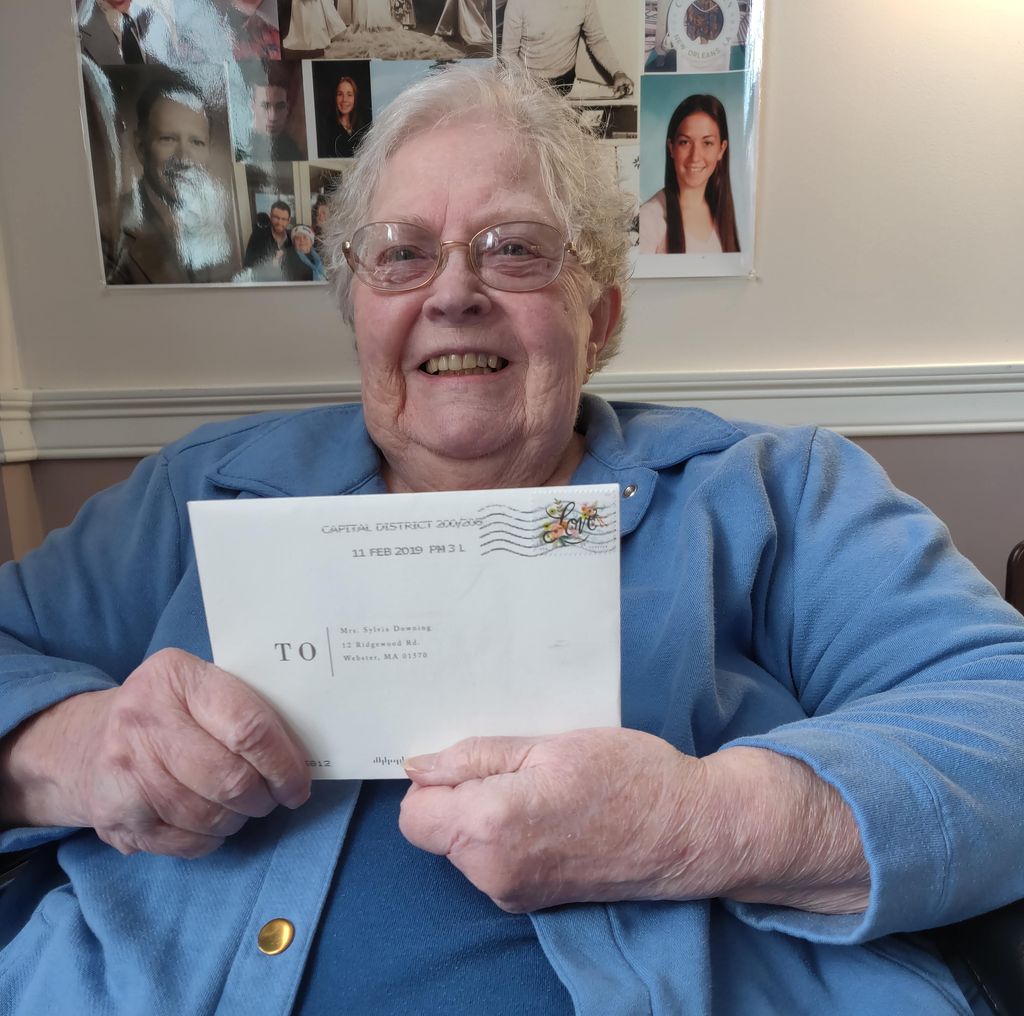 NEW ORLEANS, LA
CAPITAL DISTRICT 200/205
11 FEB 2019 PM 3 L
Love
TO
Mrs. Sylvia Downing
12 Ridgewood Rd.
Webster, MA 01570